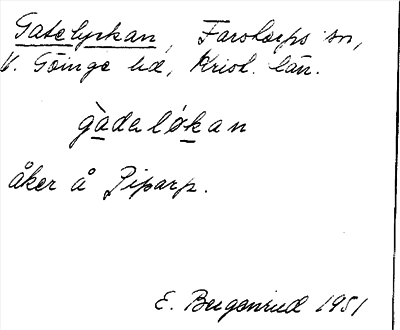 Gatelyckan, Farstorps sn,
V. Göinge hd, Krist. län.
gàdaløkan
åker å Piparp.
E. Bergenrud 1951